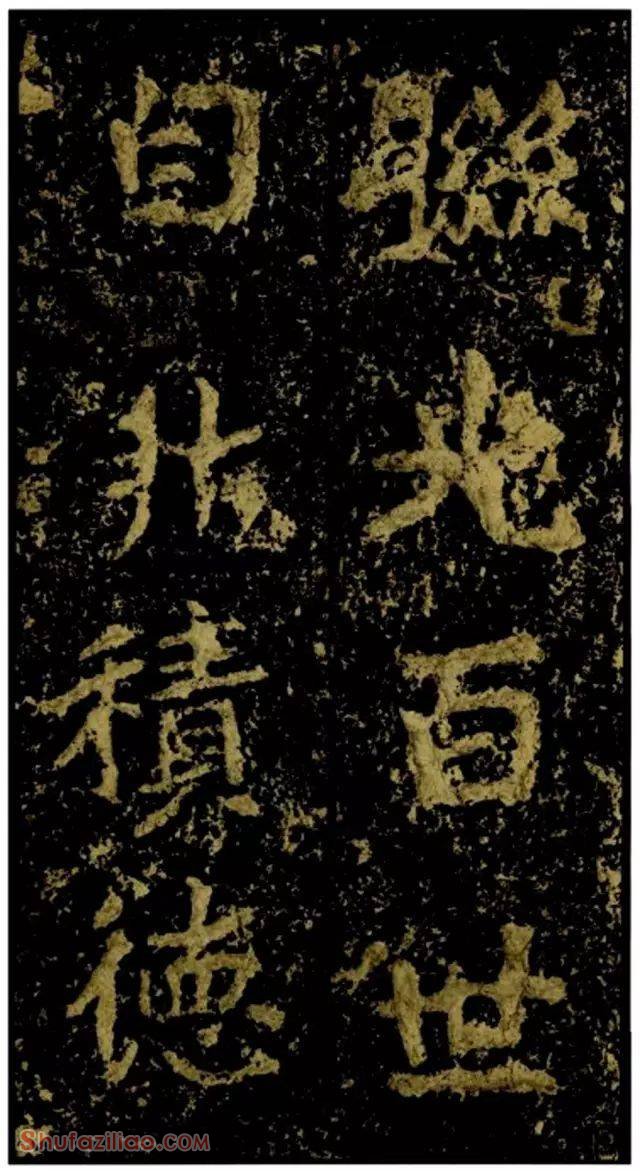 聯光百世
自非積德
Shufaziliao.COM